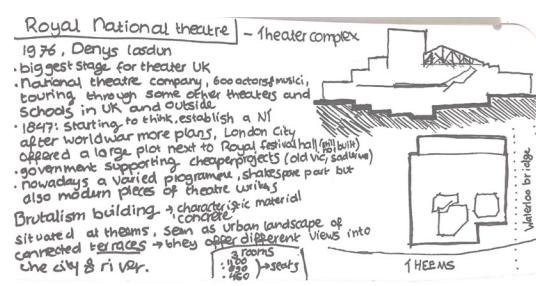 Royal National theatre - Theater complex
1976, Denys lasdun
• biggest stage for theater UK
• National theatre company, 600 actors & musici,
touring through some other theaters and
schools in UK and outside
• 1847: starting to think, establish a NT
after worldwar more plans, London City
offered a large plot next to Royal festival hall (still not built)
• government supporting cheaper projects (old vic, sadlers)
• nowadays a varied programme, shakespare part but
also modern pieces of theatre writers
Brutalism building → characteristic material
'concrete'
situated at theems, seen as urban landscape of
connected terraces → they offer different views into
the city & river.
3 rooms
: 1100
: 890
: 460
→ seats
Waterloo bridge
THEEMS